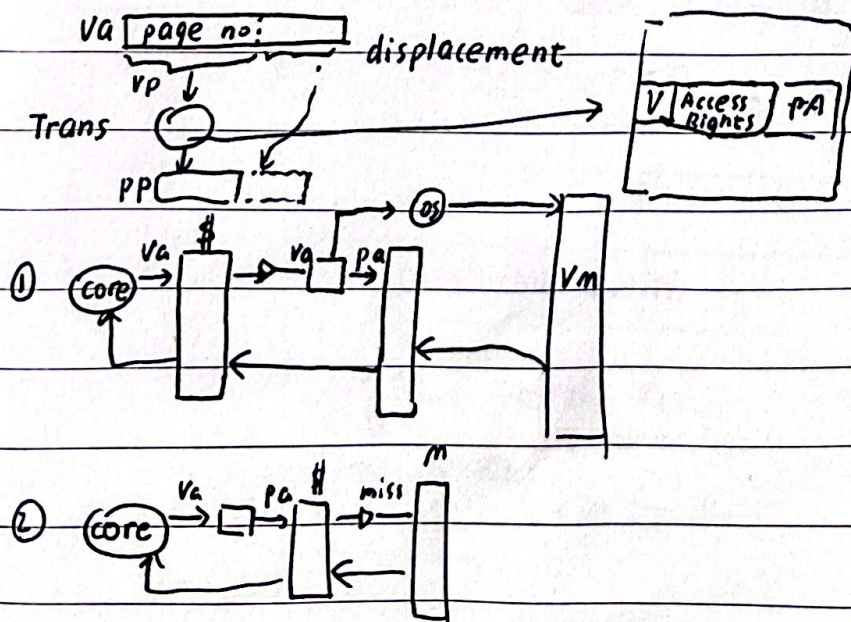 Va page no:
displacement
VP
Trans
V Access Rights PA
PP
①
core
Va
$
va
pa
OS
Vm
②
core
Va
pa
$
miss
M